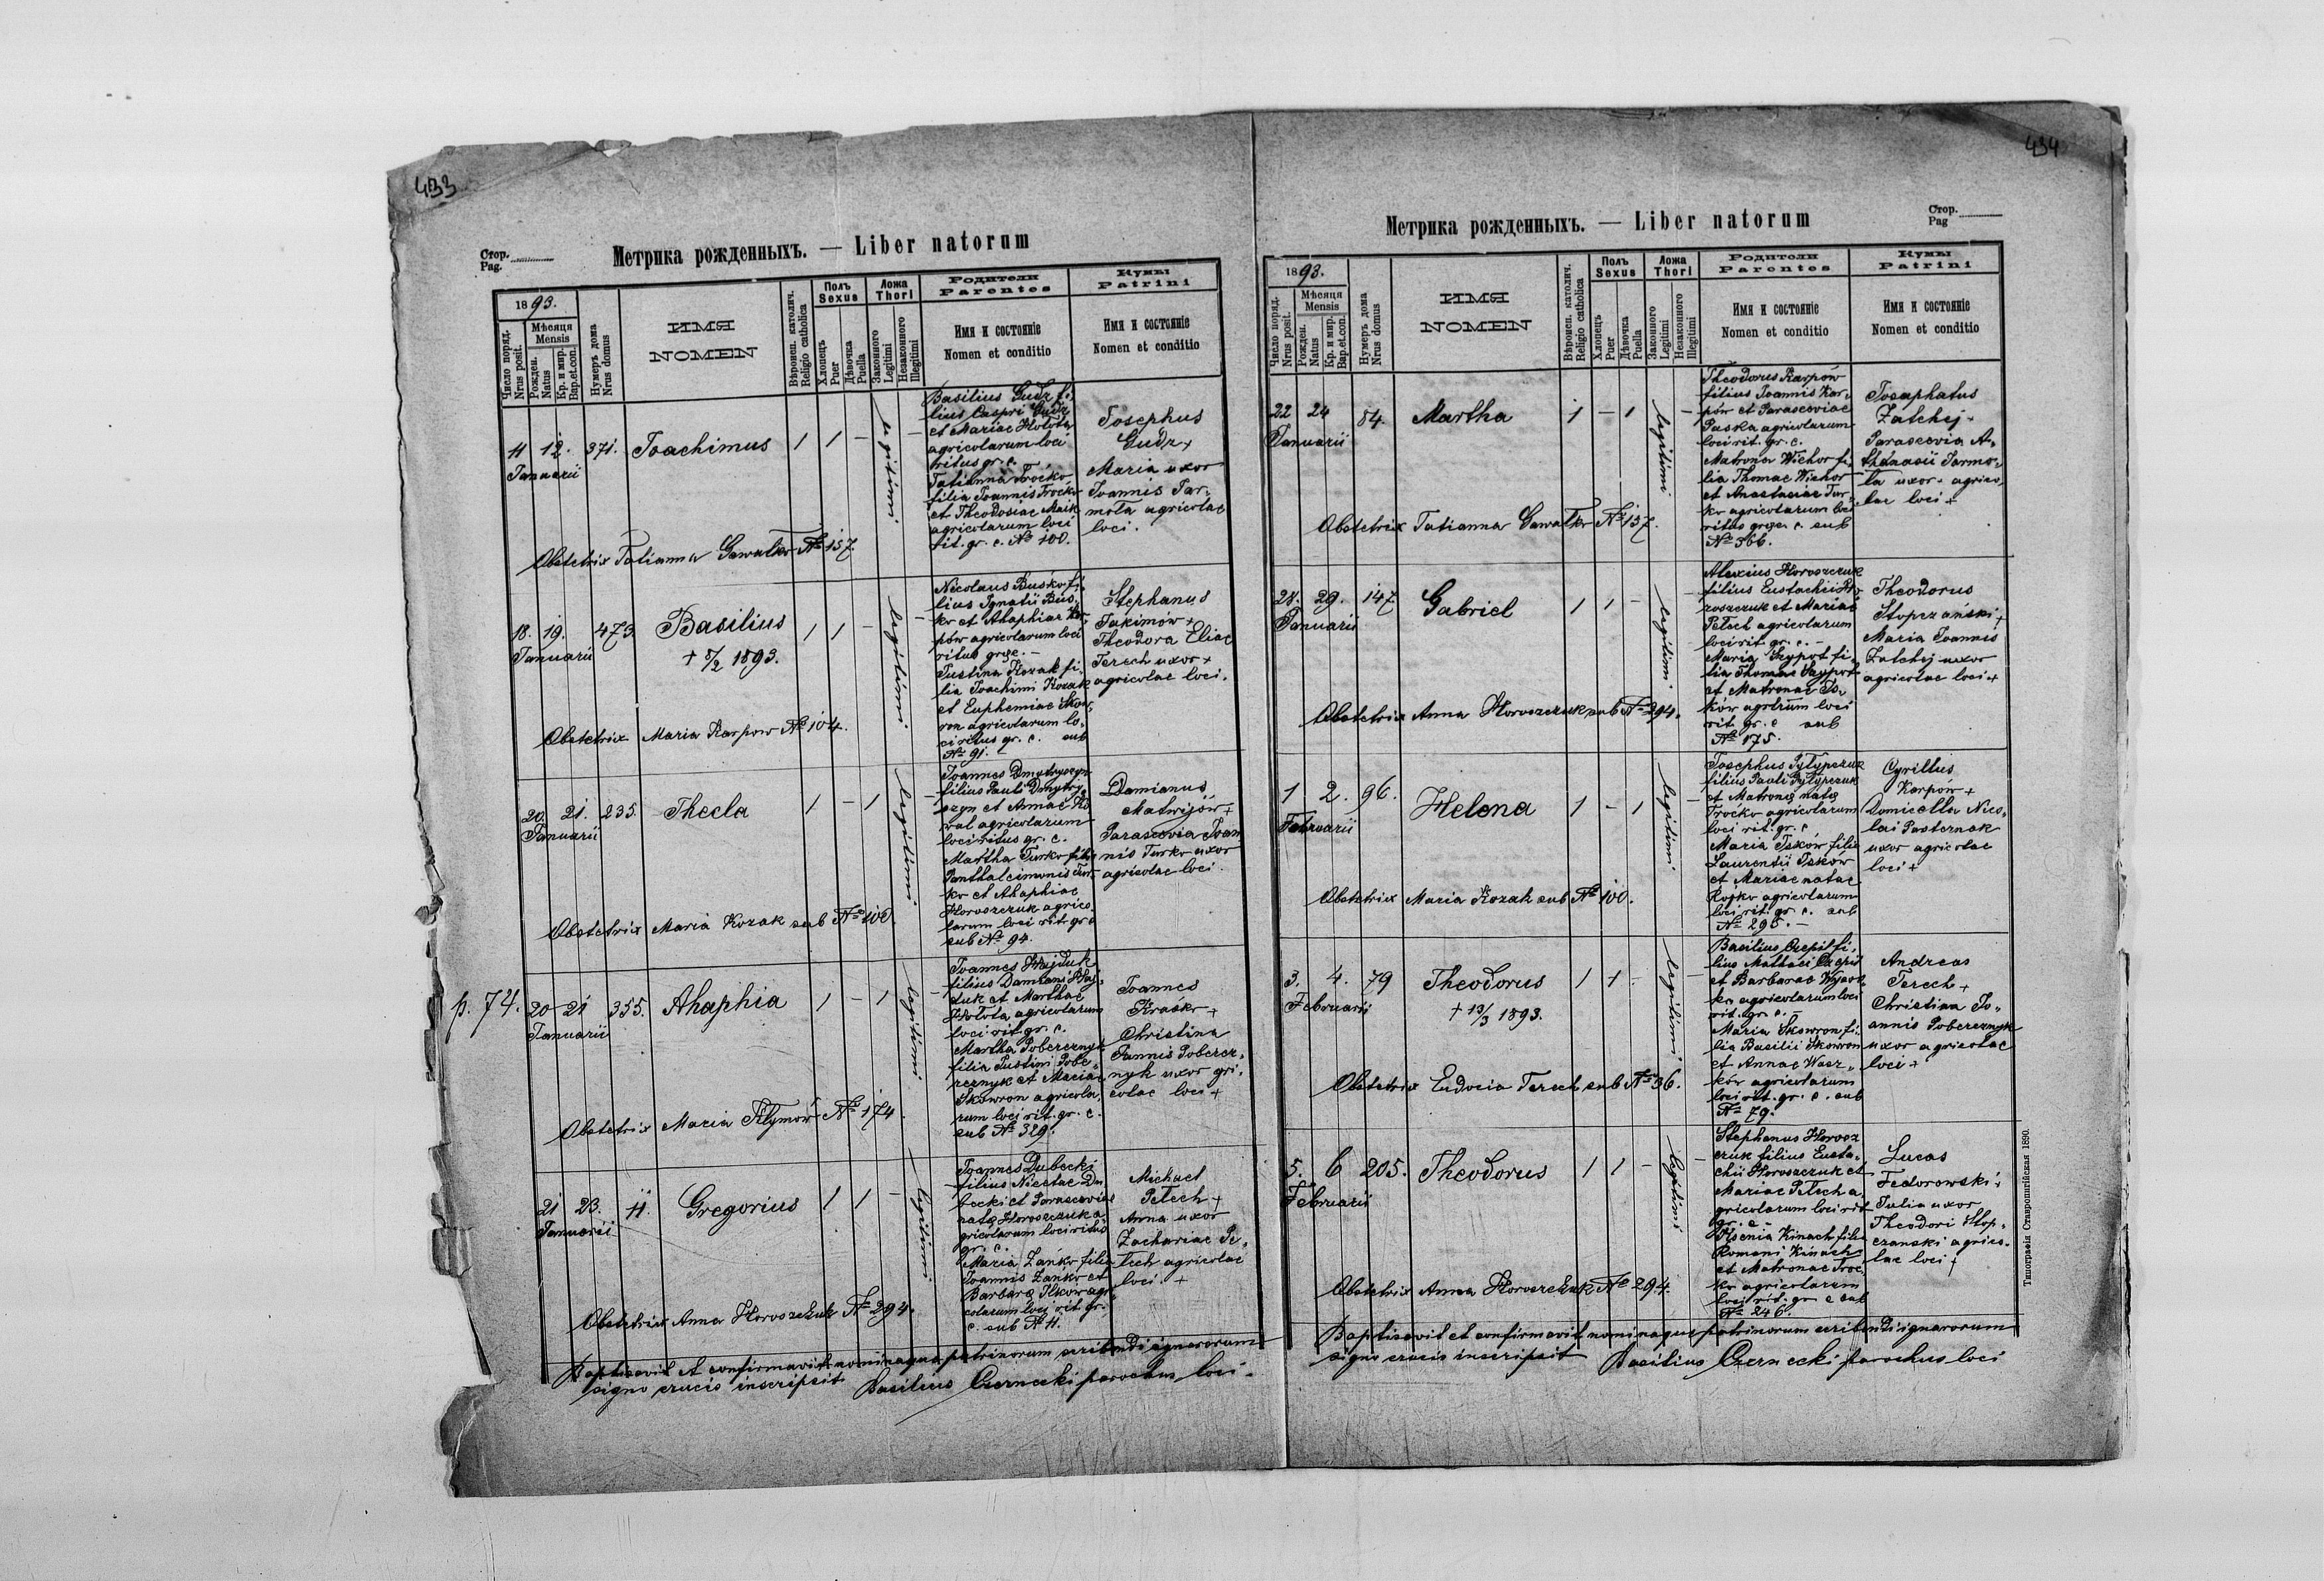 433
Стор.
Pag.
Метрика рожденныхъ. — Liber natorum
1893.
Число поряд.
Nrus posit.
Мѣсяця
Mensis
Рожден.
Natus
Кр. и мир.
Bap.et.con.
Нумеръ дома
Nrus domus
ИМЯ
NOMEN
Вѣроисп. католич.
Religio catholica
Полъ
Sexus
Хлопецъ
Puer
Дѣвочка
Puella
Ложа
Thori
Законного
Legitimi
Незаконного
Illegitimi
Родители
Parentes
Имя и состояніе
Nomen et conditio
Кумы
Patrini
Имя и состояніе
Nomen et conditio
11 12. 371. Joachimus 1 1 -
Januarii
legitimi
Basilius Gudz fi-
lius Caspri Gudz
et Mariae Holota
agricolarum loci
ritus gr. c.
Tatianna Trocko
filia Joannis Trocko
et Theodosiae Maik
agricolarum loci
rit. gr. c. № 100.
Josephus
Gudz +
Maria uxor
Joannis Jar-
mola agricolae
loci.
Obstetrix Tatianna Gawalko № 157.
18. 19. 473. Basilius 1 1 -
Januarii
+ 8/2 1893.
legitimi
Nicolaus Buśko fi-
lius Ignatii Buś-
ko et Ahaphiae Kar-
pów agricolarum loci
ritus gr. c. -
Justina Kozak fi-
lia Joachimi Kozak
et Euphemiae Skow-
ron agricolarum lo-
ci ritus gr. c. sub
№ 91. -
Stephanus
Jakimow +
Theodora Eliae
Terech uxor +
agricolae loci.
Obstetrix Maria Karpow № 104.
20. 21. 235. Thecla 1 - 1
Januarii
legitimi
Joannes Dmytryszyn
filius Pauli Dmytry-
szyn et Annae Ko
wal agricolarum
loci ritus gr. c.
Martha Turko filia
Panthaleimonis Tur-
ko et Ahaphiae
Horoszczuk agrico-
larum loci rit. gr c
sub № 94.
Damianus
Matwijów +
Parascevia Joan
nis Turko uxor
agricolae loci.
Obstetrix Maria Kozak sub № 100.
p. 74.
20 21 355. Ahaphia 1 - 1
Januarii
legitimi
Joannes Hajduk
filius Damiani Haj-
duk et Marthae
Holota agricolarum
loci rit. gr. c.
Martha Pobereznyk
filia Justini Pobe-
reznyk et Mariae
Skowron agricola-
rum loci rit. gr. c.
sub № 329.
Joannes
Kraśko +
Christina
Joannis Poberez-
nyk uxor gri-
colae loci +
Obstetrix Maria Filymow № 174.
21 23. 11. Gregorius 1 1 -
Januarii
legitimi
Joannes Dubecki
filius Nicetae Du
becki et Parasceviae
natę Horoszczuk a
gricolarum loci ritus
gr. c.
Maria Zańko filia
Joannis Zańko et
Barbarę Ilkow agri-
colarum loci rit. gr.
c. sub № 11.
Michael
Petech +
Anna uxor
Zachariae Pe-
tech agricolae
loci. +
Obstetrix Anna Horoszczuk № 294.
Baptisavit et confirmavit nominaque patrinorum scribendi ignarorum
signo crucis inscripsit Basilius Czernecki parochus loci.
434
Стор.
Pag
Метрика рожденныхъ. — Liber natorum
1893.
Число поряд.
Nrus posit.
Мѣсяця
Mensis
Рожден.
Natus
Кр. и мир.
Bap.et.con.
Нумеръ дома
Nrus domus
ИМЯ
NOMEN
Вѣроисп. католич.
Religio catholica
Полъ
Sexus
Хлопецъ
Puer
Дѣвочка
Puella
Ложа
Thori
Законного
Legitimi
Незаконного
Illegitimi
Родители
Parentes
Имя и состояніе
Nomen et conditio
Кумы
Patrini
Имя и состояніе
Nomen et conditio
22 24 84. Martha 1 - 1
Januarii
legitimi
Theodorus Karpów
filius Joannis Kar-
pów et Parasceviae
Paska agricolarum
loci rit. gr. c.
Matrona Wichor fi-
lia Thomae Wichor
et Anastasiae Tur-
ko agricolarum loci
ritus gr. c. sub
№ 366.
Josaphatus
Zatchij +
Parascevia A-
thanasii Jarmo-
la uxor - agrico-
lae loci +
Obstetrix Tatianna Gawalko № 157.
28. 29. 147 Gabriel 1 1 -
Januarii
legitimi
Alexius Horoszczuk
filius Eustachii Ho-
roszczuk et Mariae
Petech agricolarum
loci rit. gr. c. -
Maria Szypot fi-
lia Thomae Szypot
et Matronae Is-
ków agrlrum loci
rit. gr. c sub
№ 175.
Theodorus
Stopczański +
Maria Joannis
Zatchij uxor
agricolae loci +
Obstetrix Anna Horoszczuk sub № 294.
1 2. 96. Helena 1 - 1
Februarii
legitimi
Josephus Pylypczuk
filius Pauli Pylypczuk
et Matronę natę
Trocko agricolarum
loci rit. gr. c
Maria Iskow filia
Laurentii Isków
et Mariae natae
Rojko agricolarum
loci rit. gr. c. sub
№ 295. -
Cyrillus
Karpów +
Domicella Nico-
lai Pasternak
uxor agricolae
loci +
Obstetrix Maria Kozak sub № 100.
3. 4. 79 Theodorus 1 1 -
Februarii
+ 13/3 1893.
legitimi
Basilius Czepil fi-
lius Mathaei Czepil
et Barbarae
agricolarum loci
rit. gr. c. -
Maria Skowron fi-
lia Basilii Skowron
et Annae Wasz-
ków agricolarum
loci rit. gr. c. sub
№ 79.
Andreas
Terech +
Christina Jo-
annis Pobereznyk
uxor agricolae
loci +
Obstetrix Eudocia Terech sub № 36.
5. 6 205. Theodorus 1 1 -
Februarii
legitimi
Stephanus Horosz
czuk filius Eusta-
chii Horoszczuk et
Mariae Petech a
gricolarum loci rit
gr. c -
Xsenia Kinach filia
Romani Kinach
et Matronae Troc
ko agricolarum
loci rit. gr c sub
№ 246.
Lucas
Fedorowski +
Julia uxor
Theodori Stop-
czanski agrico-
lae loci +
Obstetrix Anna Horoszczuk № 294.
Baptisavit et confirmavit nominaque patrinorum scribendi ignarorum
signo crucis inscripsit Basilius Czernecki parochus loci
Типографія Ставропигійская 1890.